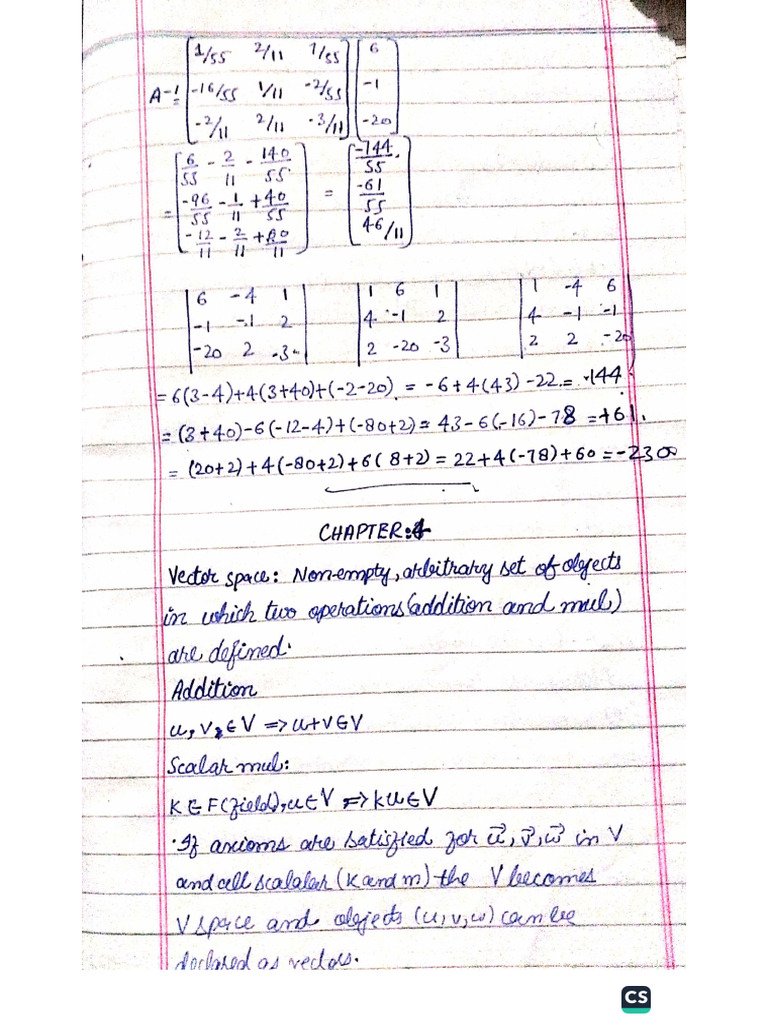 A⁻¹= [1/55 2/11 7/55] [6]
[-16/55 1/11 -2/55] [-1]
[-2/11 2/11 -3/11] [-20]
= [6/55 - 2/11 - 140/55] = [-144/55]
[-96/55 - 1/11 + 40/55] [-61/55]
[-12/11 - 2/11 + 60/11] [46/11]
|6 -4 1| |1 6 1| |1 -4 6|
|-1 -1 2| |4 -1 2| |4 -1 -1|
|-20 2 -3| |2 -20 -3| |2 2 -20|
=6(3-4)+4(3+40)+(-2-20) = -6+4(43)-22 = 144
= (3+40)-6(-12-4)+(-80+2) = 43-6(-16)-78 = +61.
= (20+2)+4(-80+2)+6(8+2) = 22+4(-78)+60 = -230
CHAPTER:4
Vector space: Non-empty, arbitrary set of objects
in which two operations(addition and mul)
are defined.
Addition
u, v ∈ V => u+v ∈ V
Scalar mul:
K ∈ F(field), u ∈ V => ku ∈ V
·If axioms are satisfied for u⃗, v⃗, w⃗ in V
and all scalaler (K and m) the V becomes
V space and objects (u,v,w) can be
declared as vectors.
CS